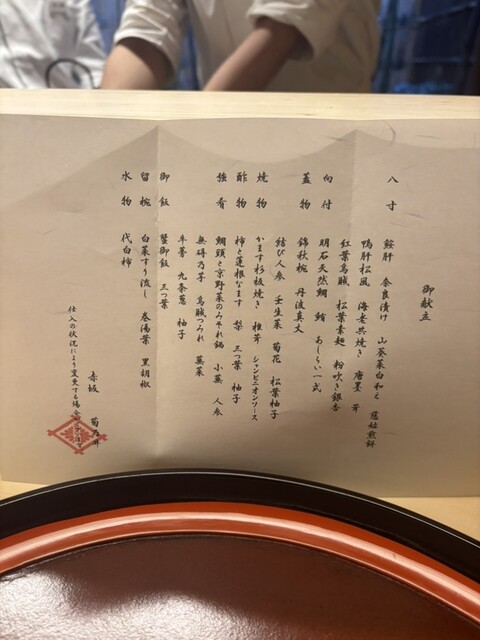 御献立
八寸 鮟肝 奈良漬け 山葵菜白和え 慈姑煎餅
鴨肝松風 海老共焼き 唐墨 芋
紅葉烏賊 松葉素麺 粉吹き銀杏
向付 明石天然鯛 鮪 あしらい一式
蓋物 錦秋椀 丹波真丈
結び人参 壬生菜 菊花 松葉柚子
焼物 かます杉板焼き 椎茸 シャンピニオンソース
酢物 柿と蓮根なます 梨 三つ葉 柚子
強肴 鯛頭と京野菜のみぞれ鍋 小蕪 人参
無碍乃子 烏賊つみれ 蕪菜
牛蒡 九条葱 柚子
御飯 蟹御飯 三つ葉
留椀 白菜すり流し 巻湯葉 黒胡椒
水物 代白柿
赤坂 菊乃井
仕入の状況により変更する場合